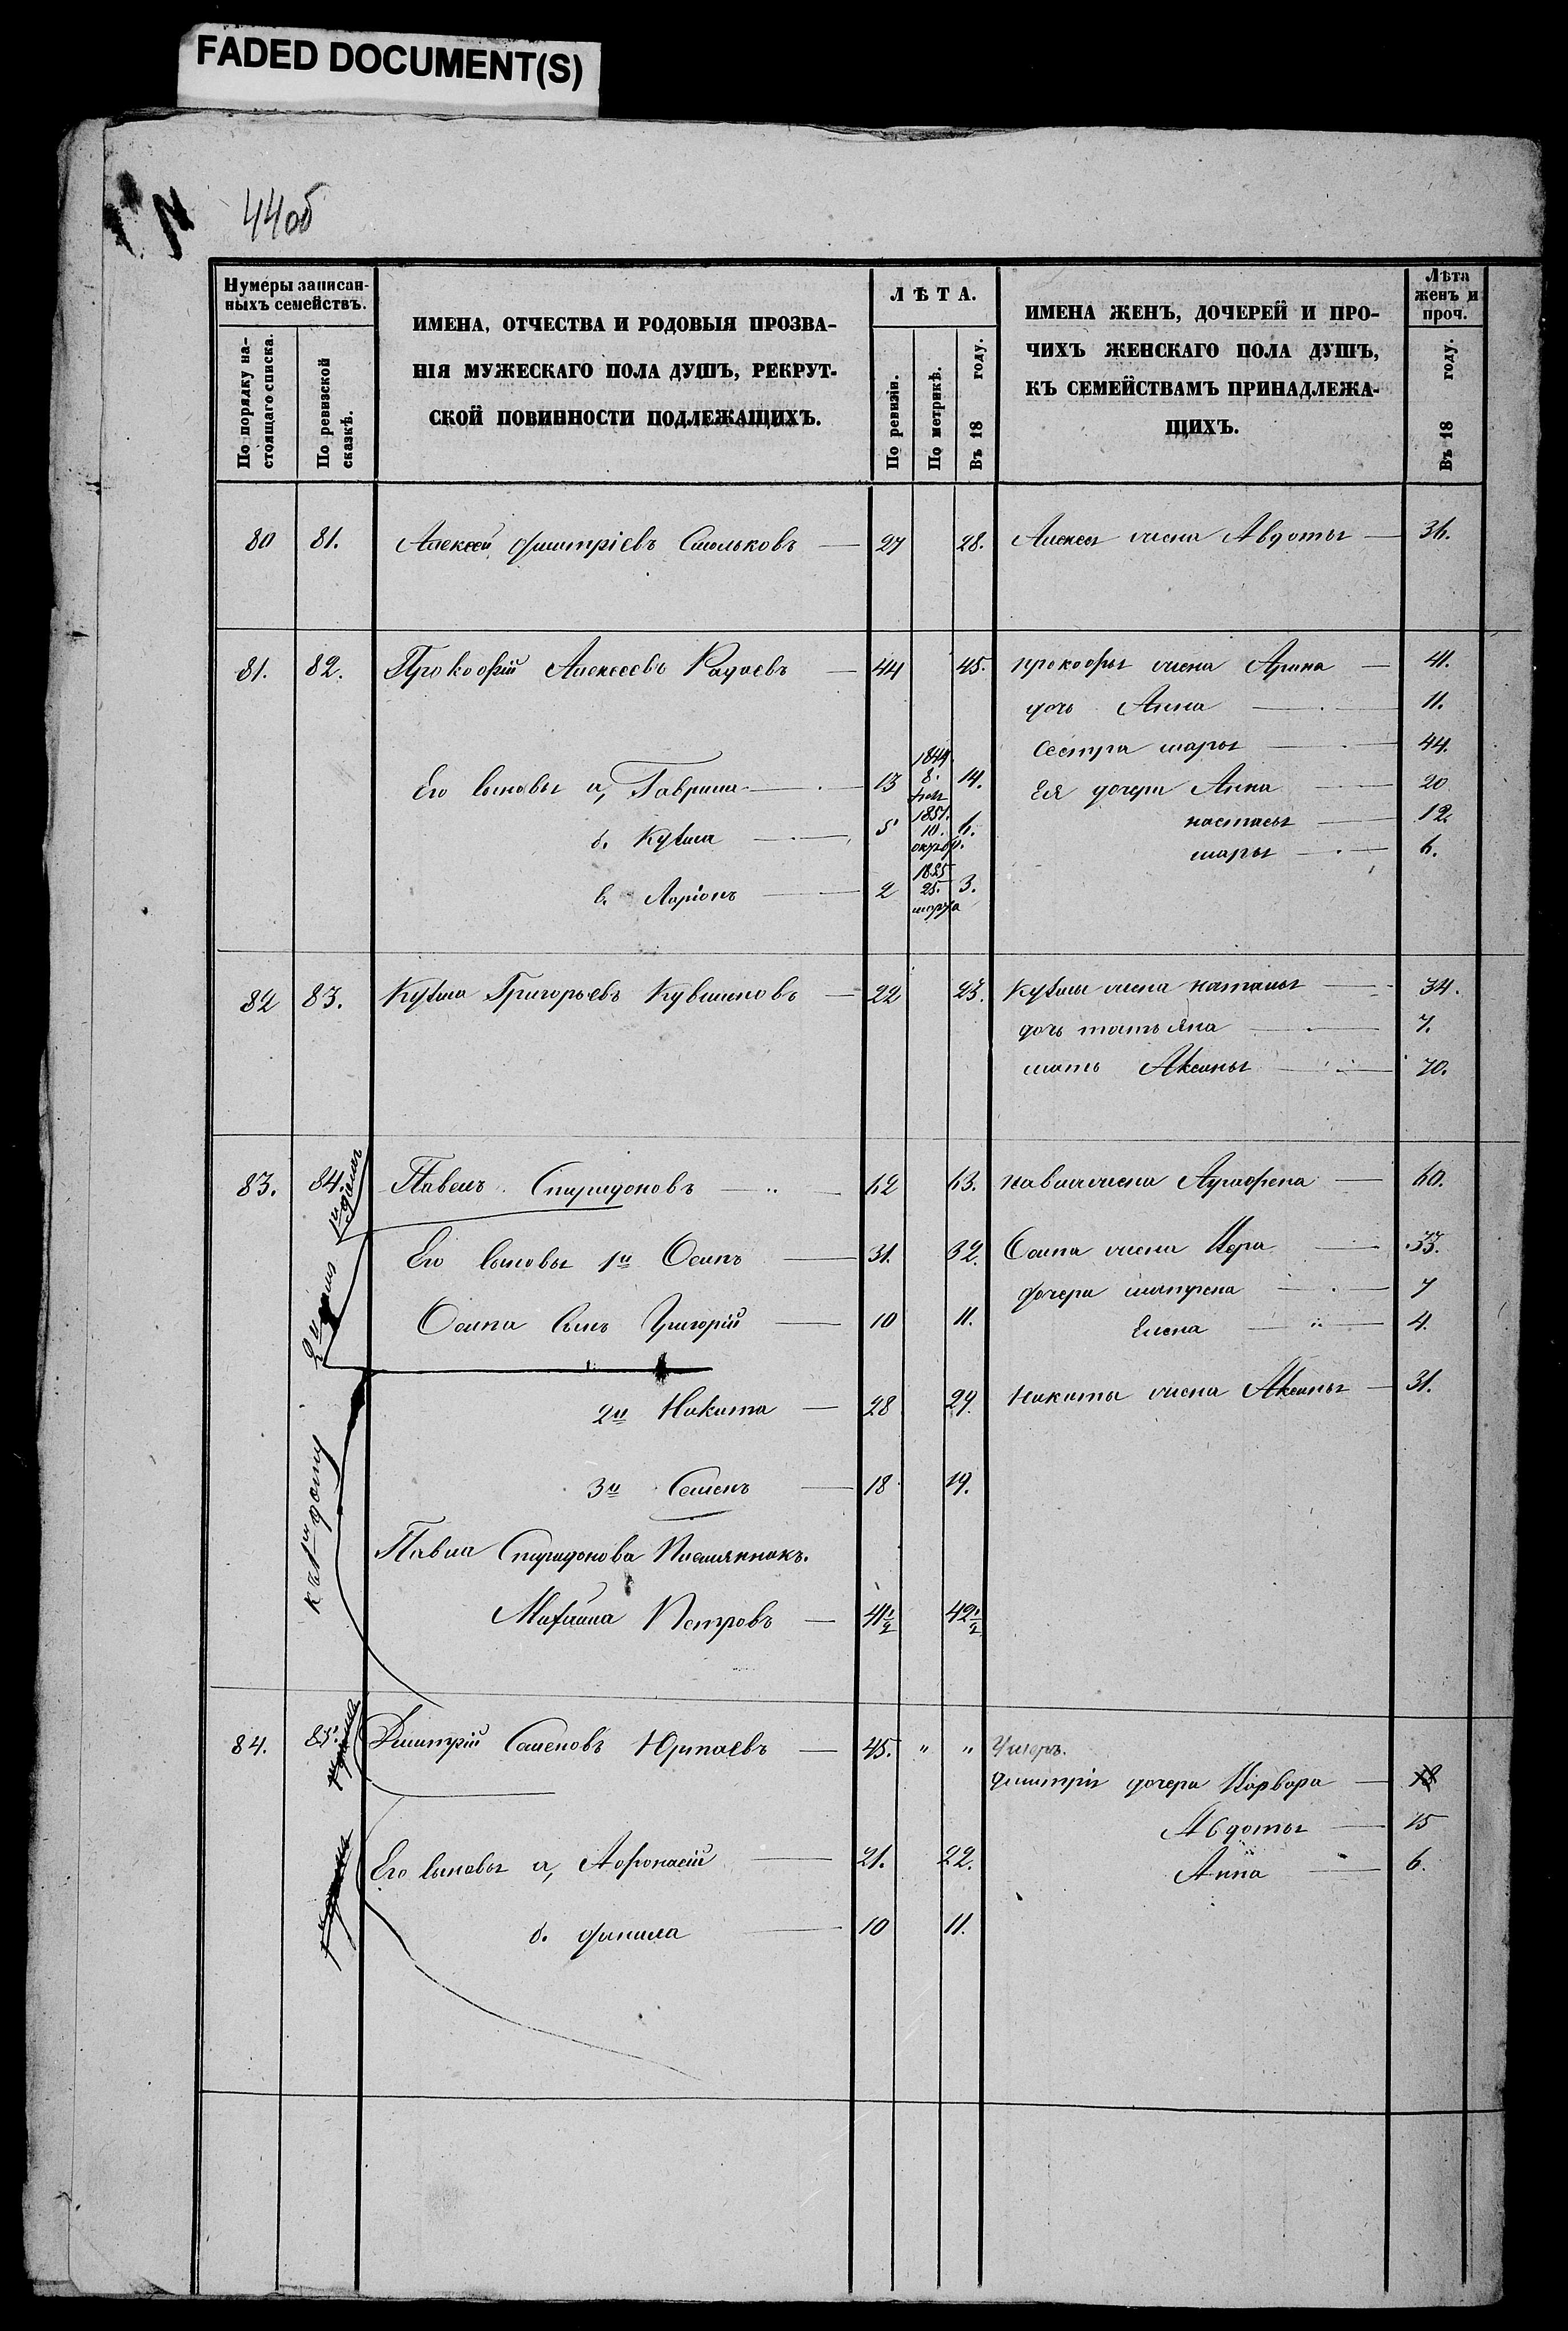 FADED DOCUMENT(S)
44об
Нумеры записан-
ныхъ семействъ.
По порядку на-
стоящаго списка.
По ревизской
сказкѣ.
ИМЕНА, ОТЧЕСТВА И РОДОВЫЯ ПРОЗВА-
НІЯ МУЖЕСКАГО ПОЛА ДУШЪ, РЕКРУТ-
СКОЙ ПОВИННОСТИ ПОДЛЕЖАЩИХЪ.
ЛѢТА.
По ревизіи.
По метрикѣ.
Въ 18 году.
ИМЕНА ЖЕНЪ, ДОЧЕРЕЙ И ПРО-
ЧИХЪ ЖЕНСКАГО ПОЛА ДУШЪ,
КЪ СЕМЕЙСТВАМЪ ПРИНАДЛЕЖА-
ЩИХЪ.
Лѣта
женъ и
проч.
Въ 18 году.
80 81. Алексей Дмитріевъ Смольковъ — 27 28. Алексея жена Авдотья — 31.
81. 82. Прокофій Алексеевъ Радаевъ — 44 45. прокофья жена Арина — 41.
дочь Анна — 11.
Сестра марья — 44.
Его сыновья а, Гаврила — 13 1844. 8. 14. Ея дочери Анна — 20
настасья — 12.
б. Кузма — 5 1851. 10. октябр. 6. марья — 6.
в. Ларіонъ — 2 25. марта 3.
82 83. Кузма Григорьевъ — 22 23. Кузмы жена наталья — 34.
дочь татьяна — 7.
мать Аксинья — 70.
83. 84. Павелъ Спиридоновъ — 62 63. павла жена Аграфена — 60.
Его сыновья 1й Осипъ — 31. 32. Осипа жена Вера — 33.
дочери матрена — 7
Осипа сынъ Григорій — 10 11. Елена — 4.
2й Никита — 28 29. Никиты жена Аксинья — 31.
3й Семенъ — 18 19.
къ 1му дому
Павла Спиридонова Племянникъ.
Михайла Петровъ — 41½ 42½
84. 85. Дмитрій Семеновъ Юртаевъ — 45. " " Умеръ.
Дмитрія дочери Варвара — 18
Авдотья — 15
Его сыновья а, Афонасій — 21. 22. Анна — 6.
б. Данила — 10 11.